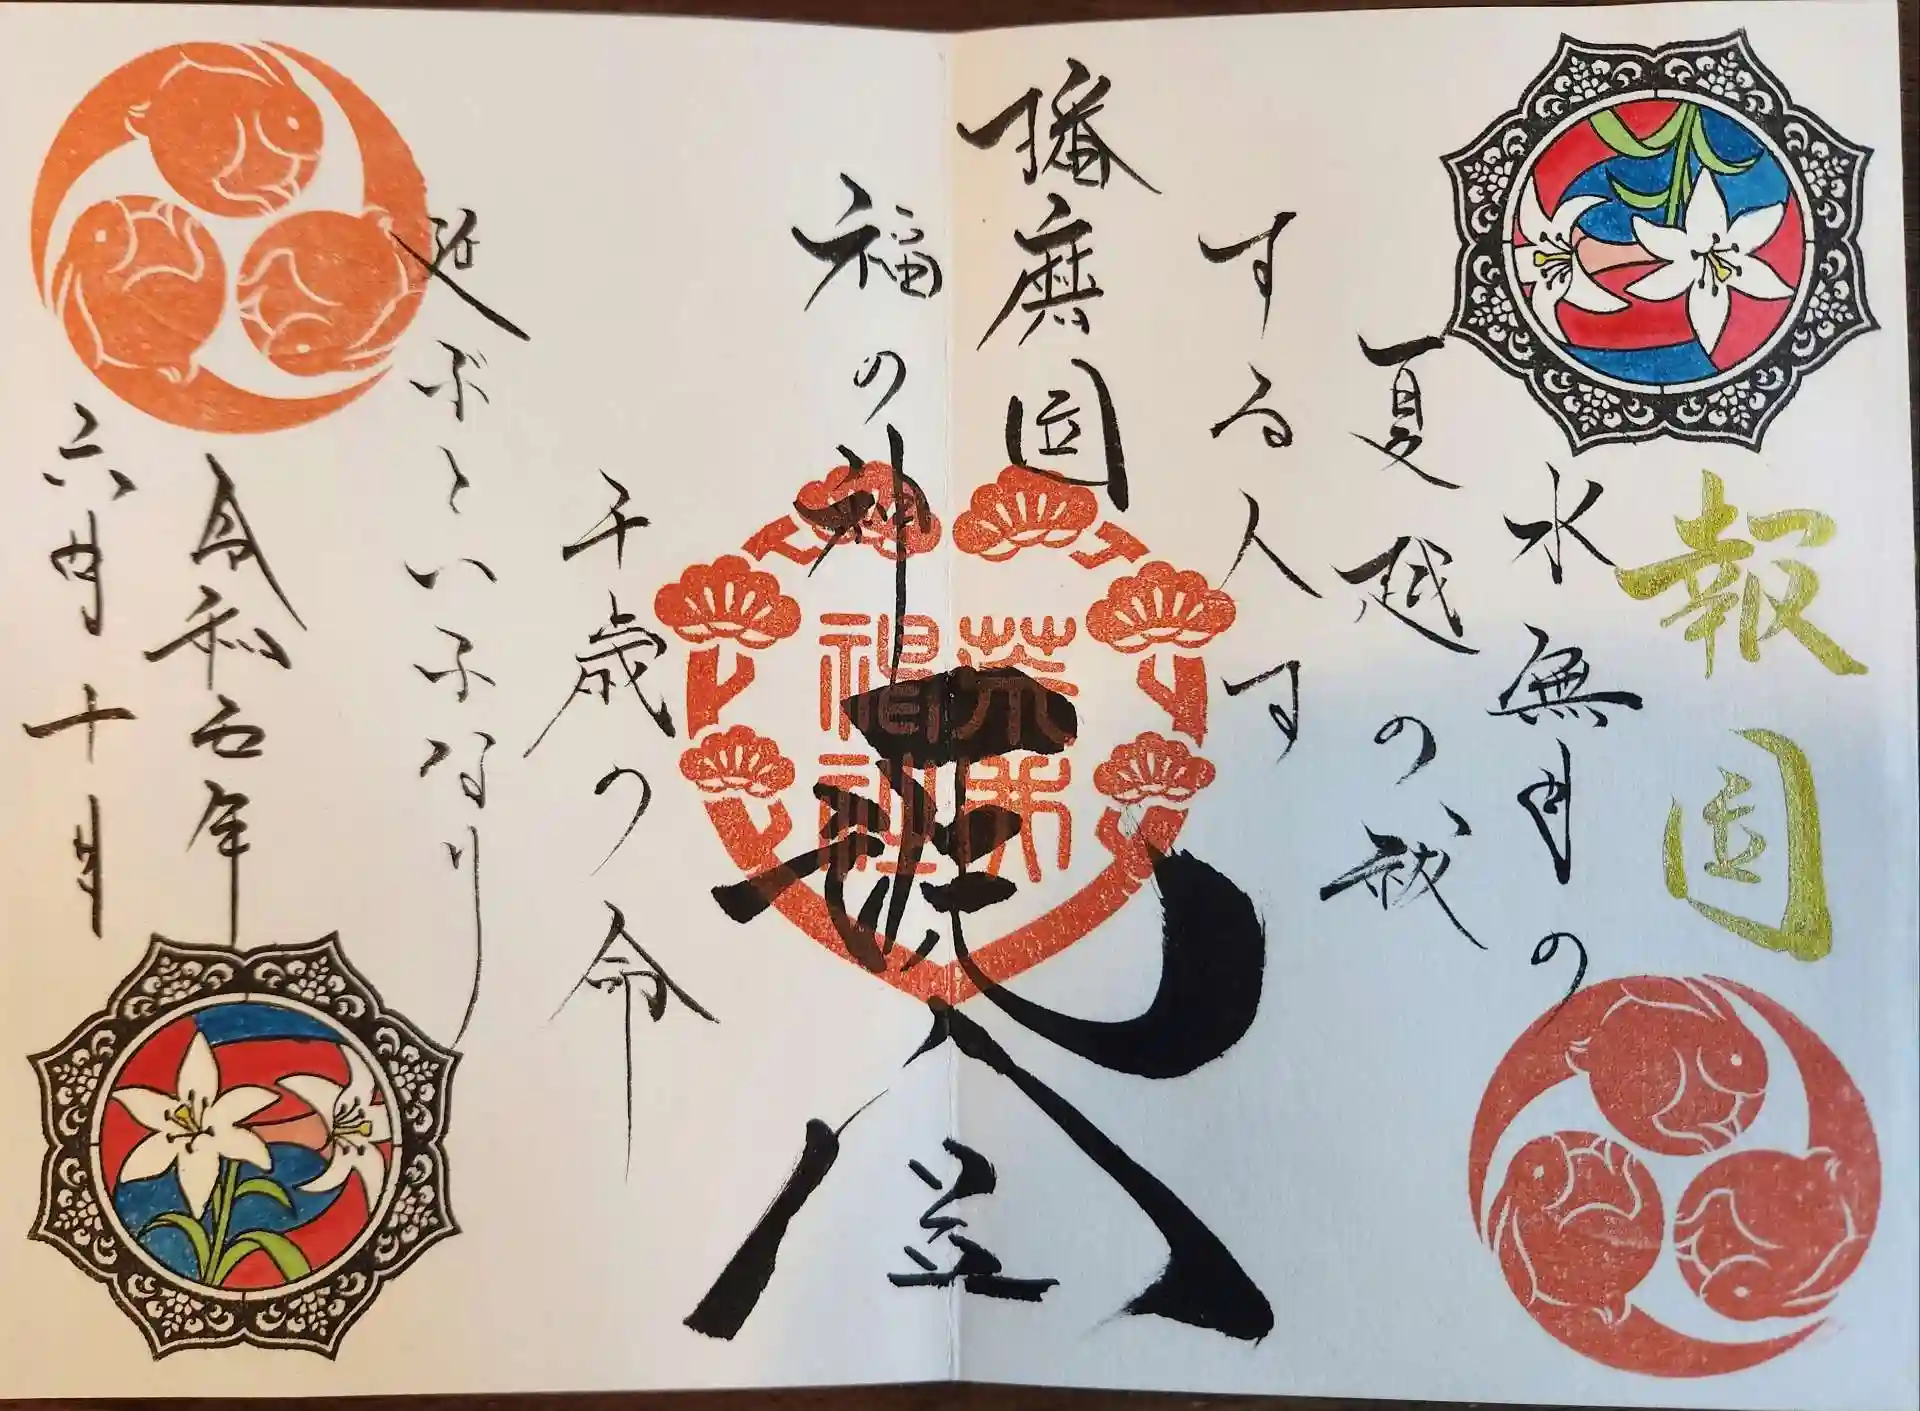 報国
水無月の
夏越の祓
する人は
播磨国
福の神
千歳の命
延ぶといふなり
令和五年
六月十日